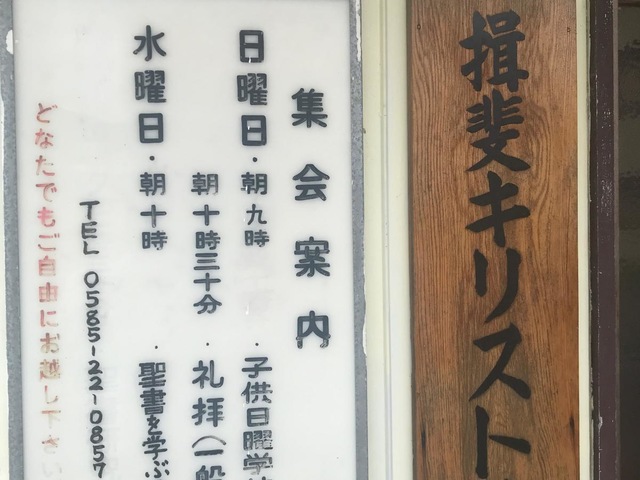 揖斐キリスト
集会案内
日曜日・朝九時・子供日曜学
朝十時三十分・礼拝(一般
水曜日・朝十時・聖書を学ぶ
TEL 0585-22-0857
どなたでもご自由にお越し下さい